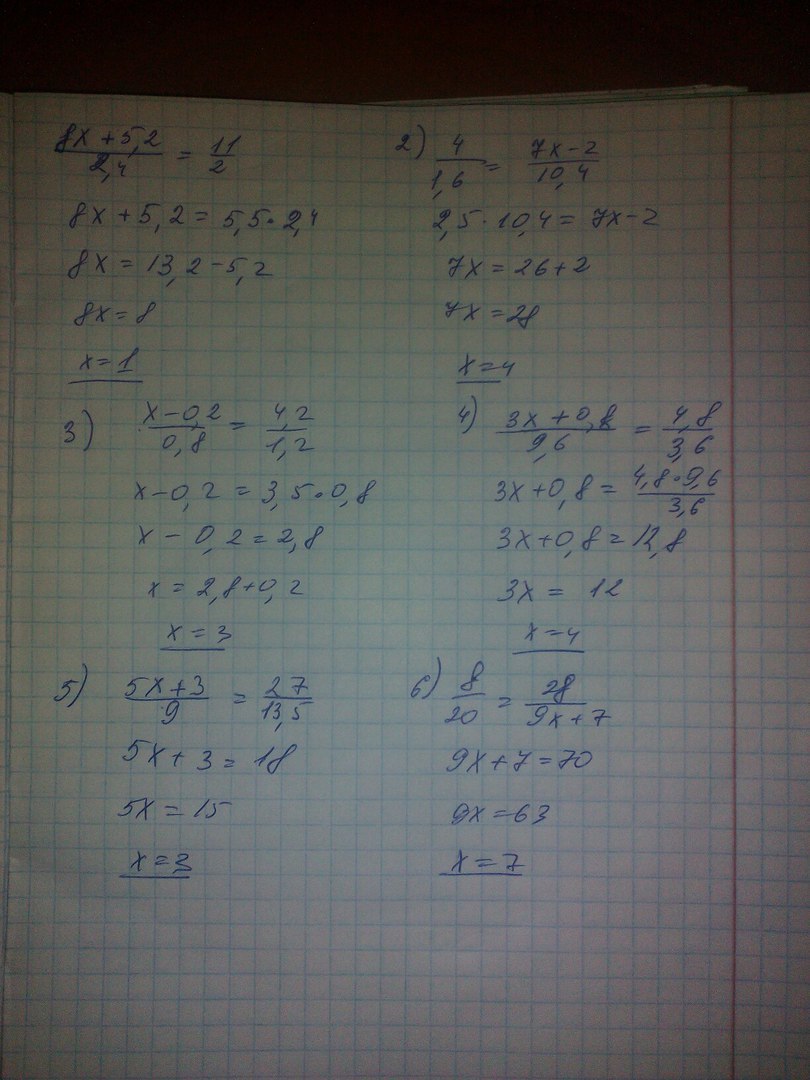 8x + 5,2 / 2,4 = 11 / 2
8x + 5,2 = 5,5 · 2,4
8x = 13,2 - 5,2
8x = 8
x = 1
2) 4 / 1,6 = 7x - 2 / 10,4
2,5 · 10,4 = 7x - 2
7x = 26 + 2
7x = 28
x = 4
3) x - 0,2 / 0,8 = 4,2 / 1,2
x - 0,2 = 3,5 · 0,8
x - 0,2 = 2,8
x = 2,8 + 0,2
x = 3
4) 3x + 0,8 / 9,6 = 4,8 / 3,6
3x + 0,8 = 4,8 · 9,6 / 3,6
3x + 0,8 = 12,8
3x = 12
x = 4
5) 5x + 3 / 9 = 27 / 13,5
5x + 3 = 18
5x = 15
x = 3
6) 8 / 20 = 28 / 9x + 7
9x + 7 = 70
9x = 63
x = 7